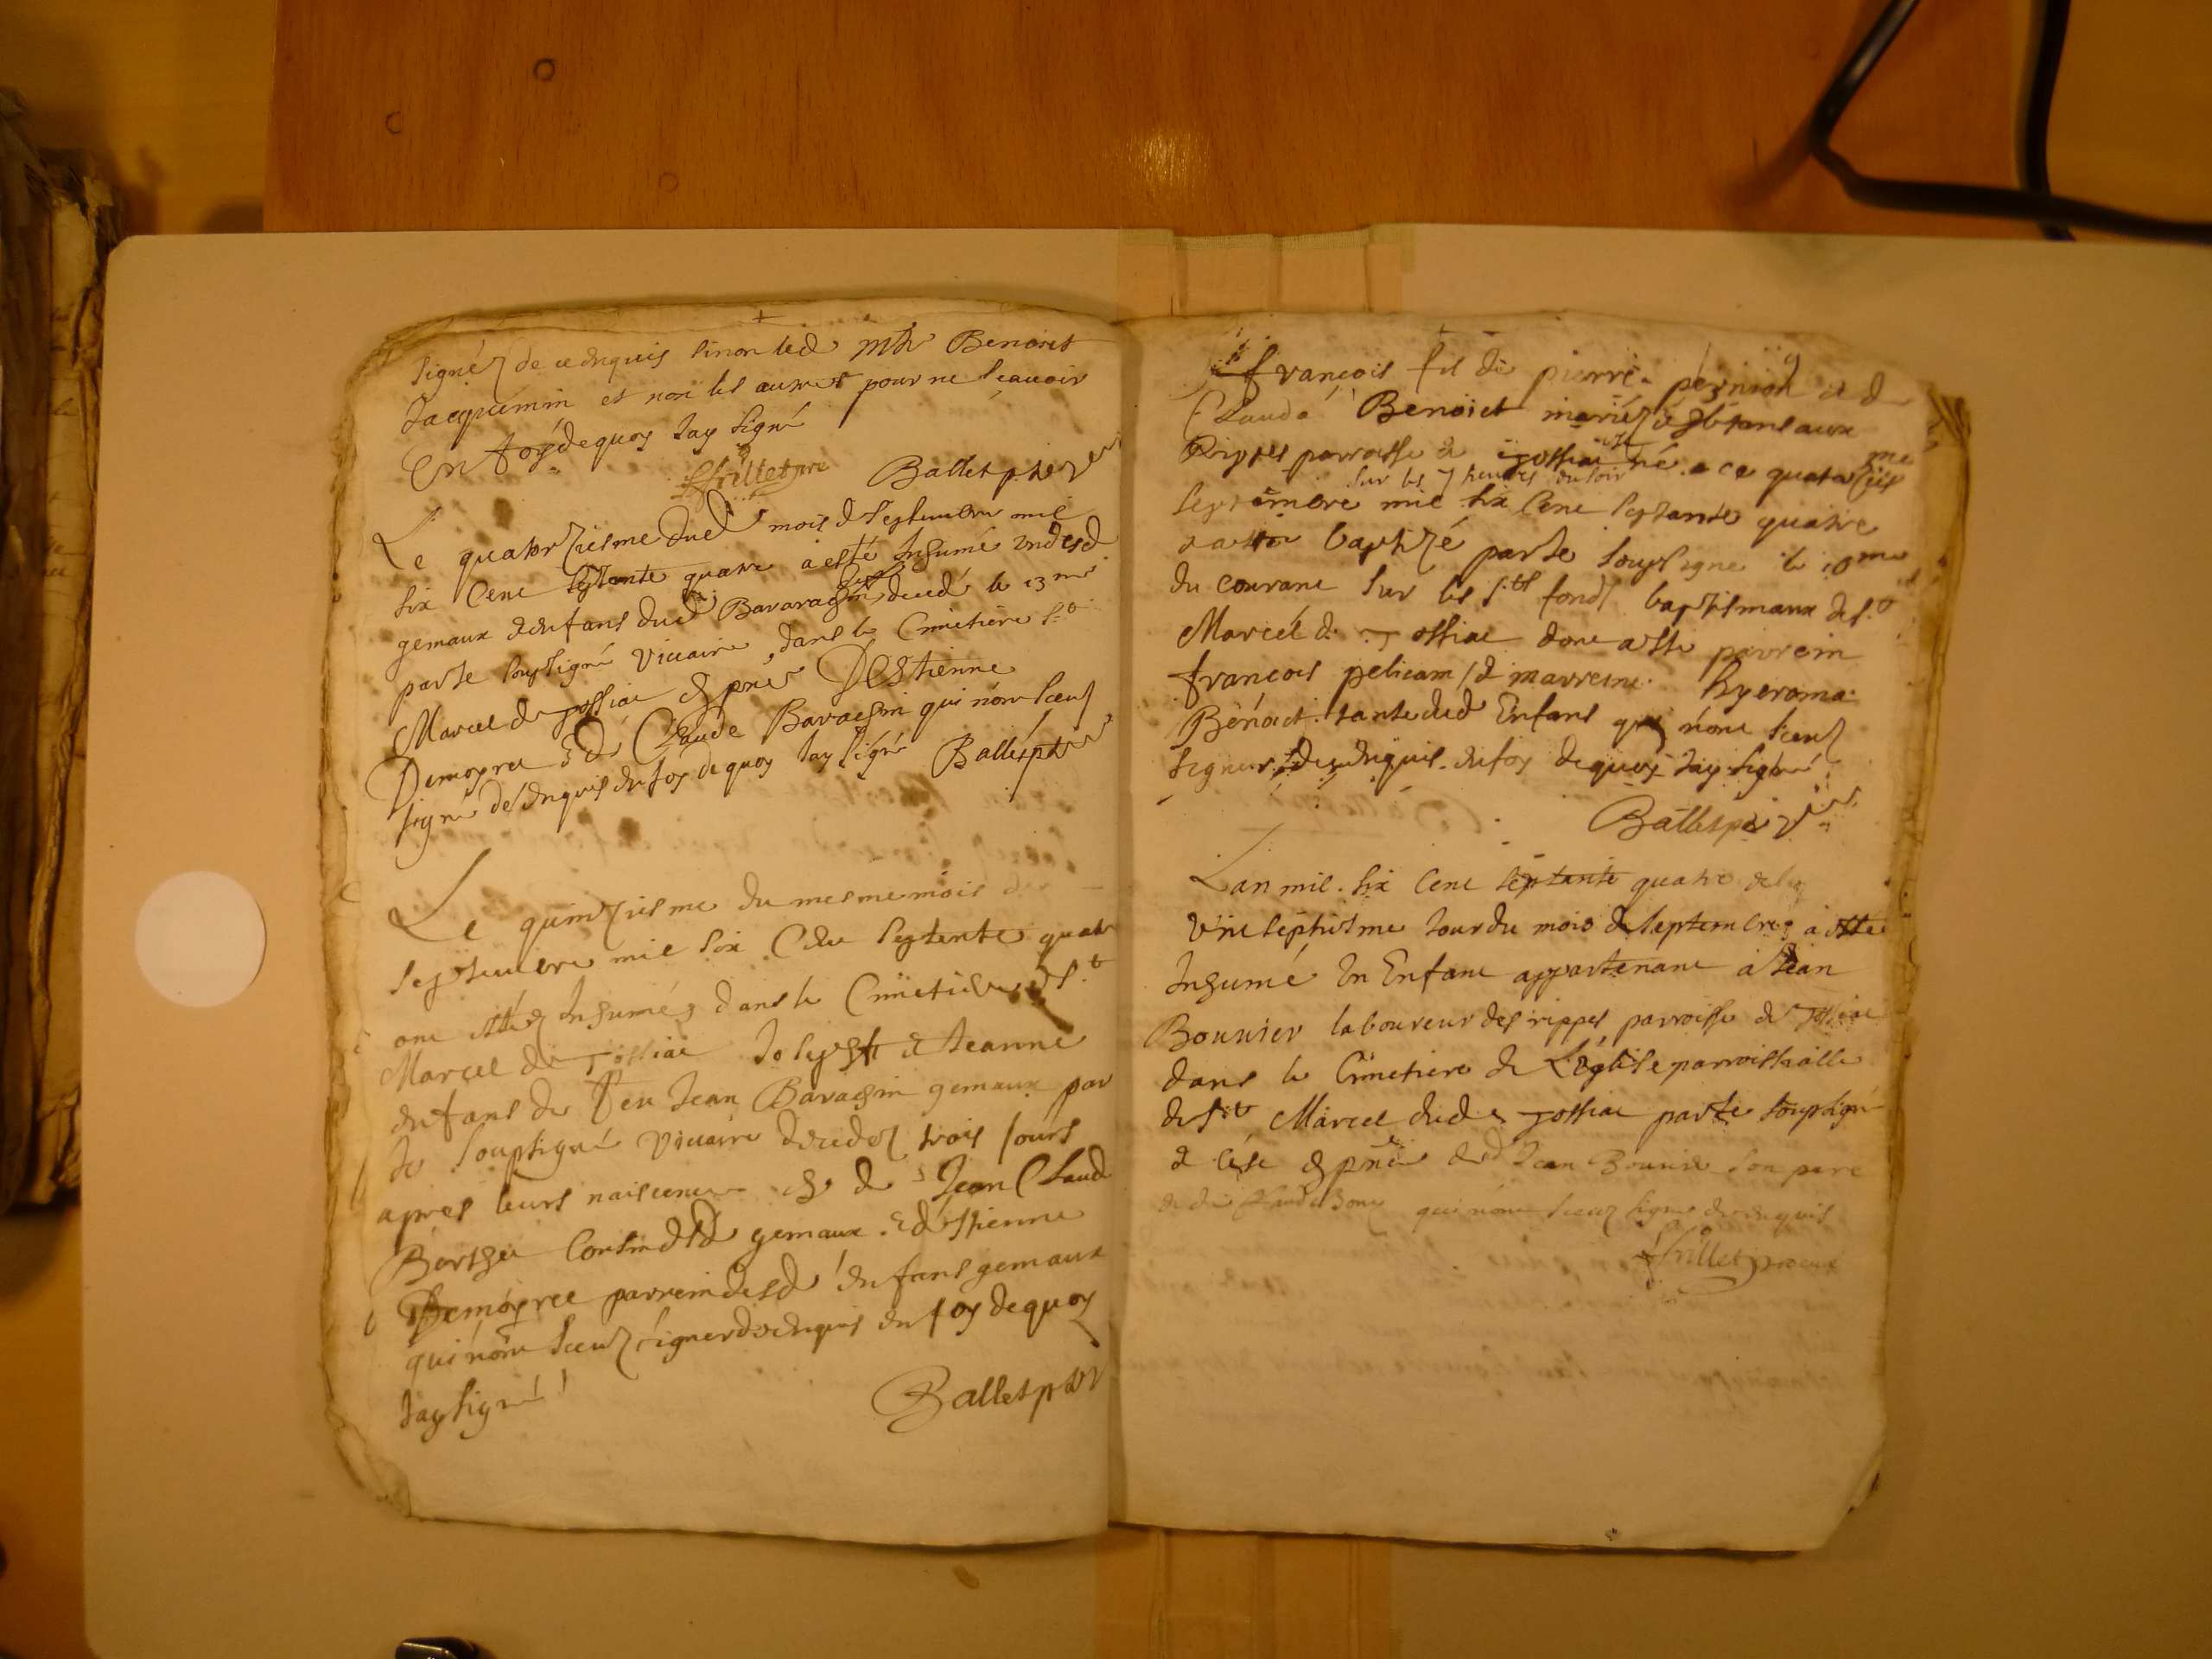 signéz de ce enquis sinon led mtre Benoist
Jacquemin et non les autres pour ne scauoir
En foy de quoy Jay signé
frillet pre Ballet ptre
Le quatorziesme dud mois d Septembre mil
six Cent septante quatre a esté Inhumé un desd
gemaux enfans dud Bavarachin decedé le 13 me
par le soubsigné vicaire dans le Cimetiere St
Marcel de Jossiac Destienne
Demogree & de Claude Bavachin qui nont sceuz
signé de enquis en foy de quoy Jay signé Ballet ptre
Le quinziesme du mesme mois de
septembre mil six Cent septante quatre
ont estéz Inhuméz dans le Cimetiere St
Marcel de Jossiac Joseph & Jeanne
enfans de feu Jean Bavachin gemaux par
le soupsigné vicaire decedez trois jours
apres leurs naiscence & de Jean Claude
Berthet Cousin dsd gemaux & destienne
Demogree parrein desd enfans gemaux
qui nont sceuz signer de enquis en foy de quoy
Jay signé
Ballet ptre
françois fils de pierre pernion & d
Clauda Benoict mariéz aux
Rippes parroisse de Jossiac né ce quatorzies me
sur les 7 heures du soir
septembre mil six Cent septante quatre
& a esté baptizé par le soupsigne le
du courant sur les s.ts fondz baptismaux de s.t
Marcel de Jossiac dont a esté parrein
françois pelicam & marreine hyeroma
Benoict tante dud Enfant qui nont sceuz
signer de enquis en foy de quoy Jay signé
Ballet ptre
Lan mil six Cent septante quatre
vint septiesme Jour du mois de septembre a esté
Inhumé Un Enfant appartenant à Jean
Bouuier laboureur des rippes parroisse de Jossiac
dans le Cimetiere de Leglise parroissialle
de st Marcel dud Jossiac par le soupsigné
Jean Bouuier son pere
& de Claude qui nont sceuz signer de enquis
frillet